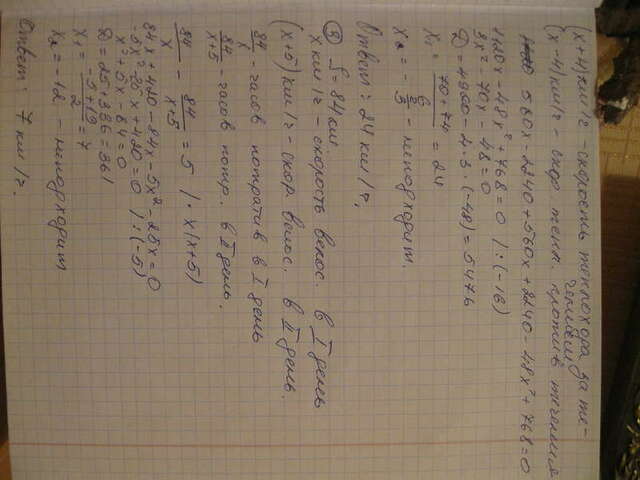 (x+4) км/ч - скорость теплохода за те-
чением
(x-4) км/ч - скор. тепл. против течения
560x - 2240 + 560x + 2240 - 48x² + 768 = 0
1120x - 48x² + 768 = 0 | : (-16)
3x² - 70x - 48 = 0
D = 4900 - 4·3·(-48) = 5476
x₁ = (70+74)/6 = 24
x₂ = -2/3 - не подходит.
Ответ: 24 км/ч.
② S = 84 км
x км/ч - скорость велос. в I день
(x+5) км/ч - скор. велос. в II день.
84/x - часов потратив в I день
84/(x+5) - часов потр. в II день.
84/x - 84/(x+5) = 5 | · x(x+5)
84x + 420 - 84x - 5x² - 25x = 0
-5x² - 25x + 420 = 0 | : (-5)
x² + 5x - 84 = 0
D = 25 + 336 = 361
x₁ = (-5+19)/2 = 7
x₂ = -12 - не подходит
Ответ: 7 км/ч.